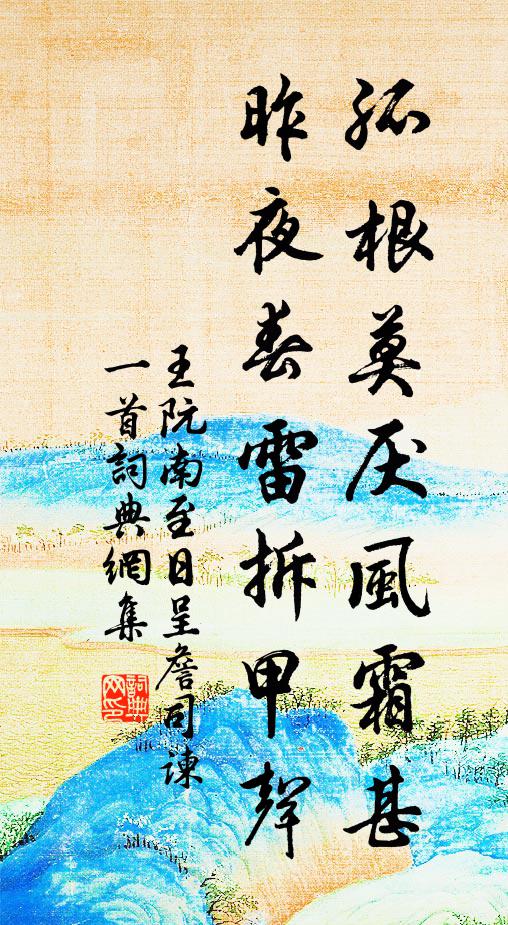 孤根莫厌風霜甚
昨夜春雷拆甲聲
王阮南至日呈詹司諫
一首詞典網集
詞典网印